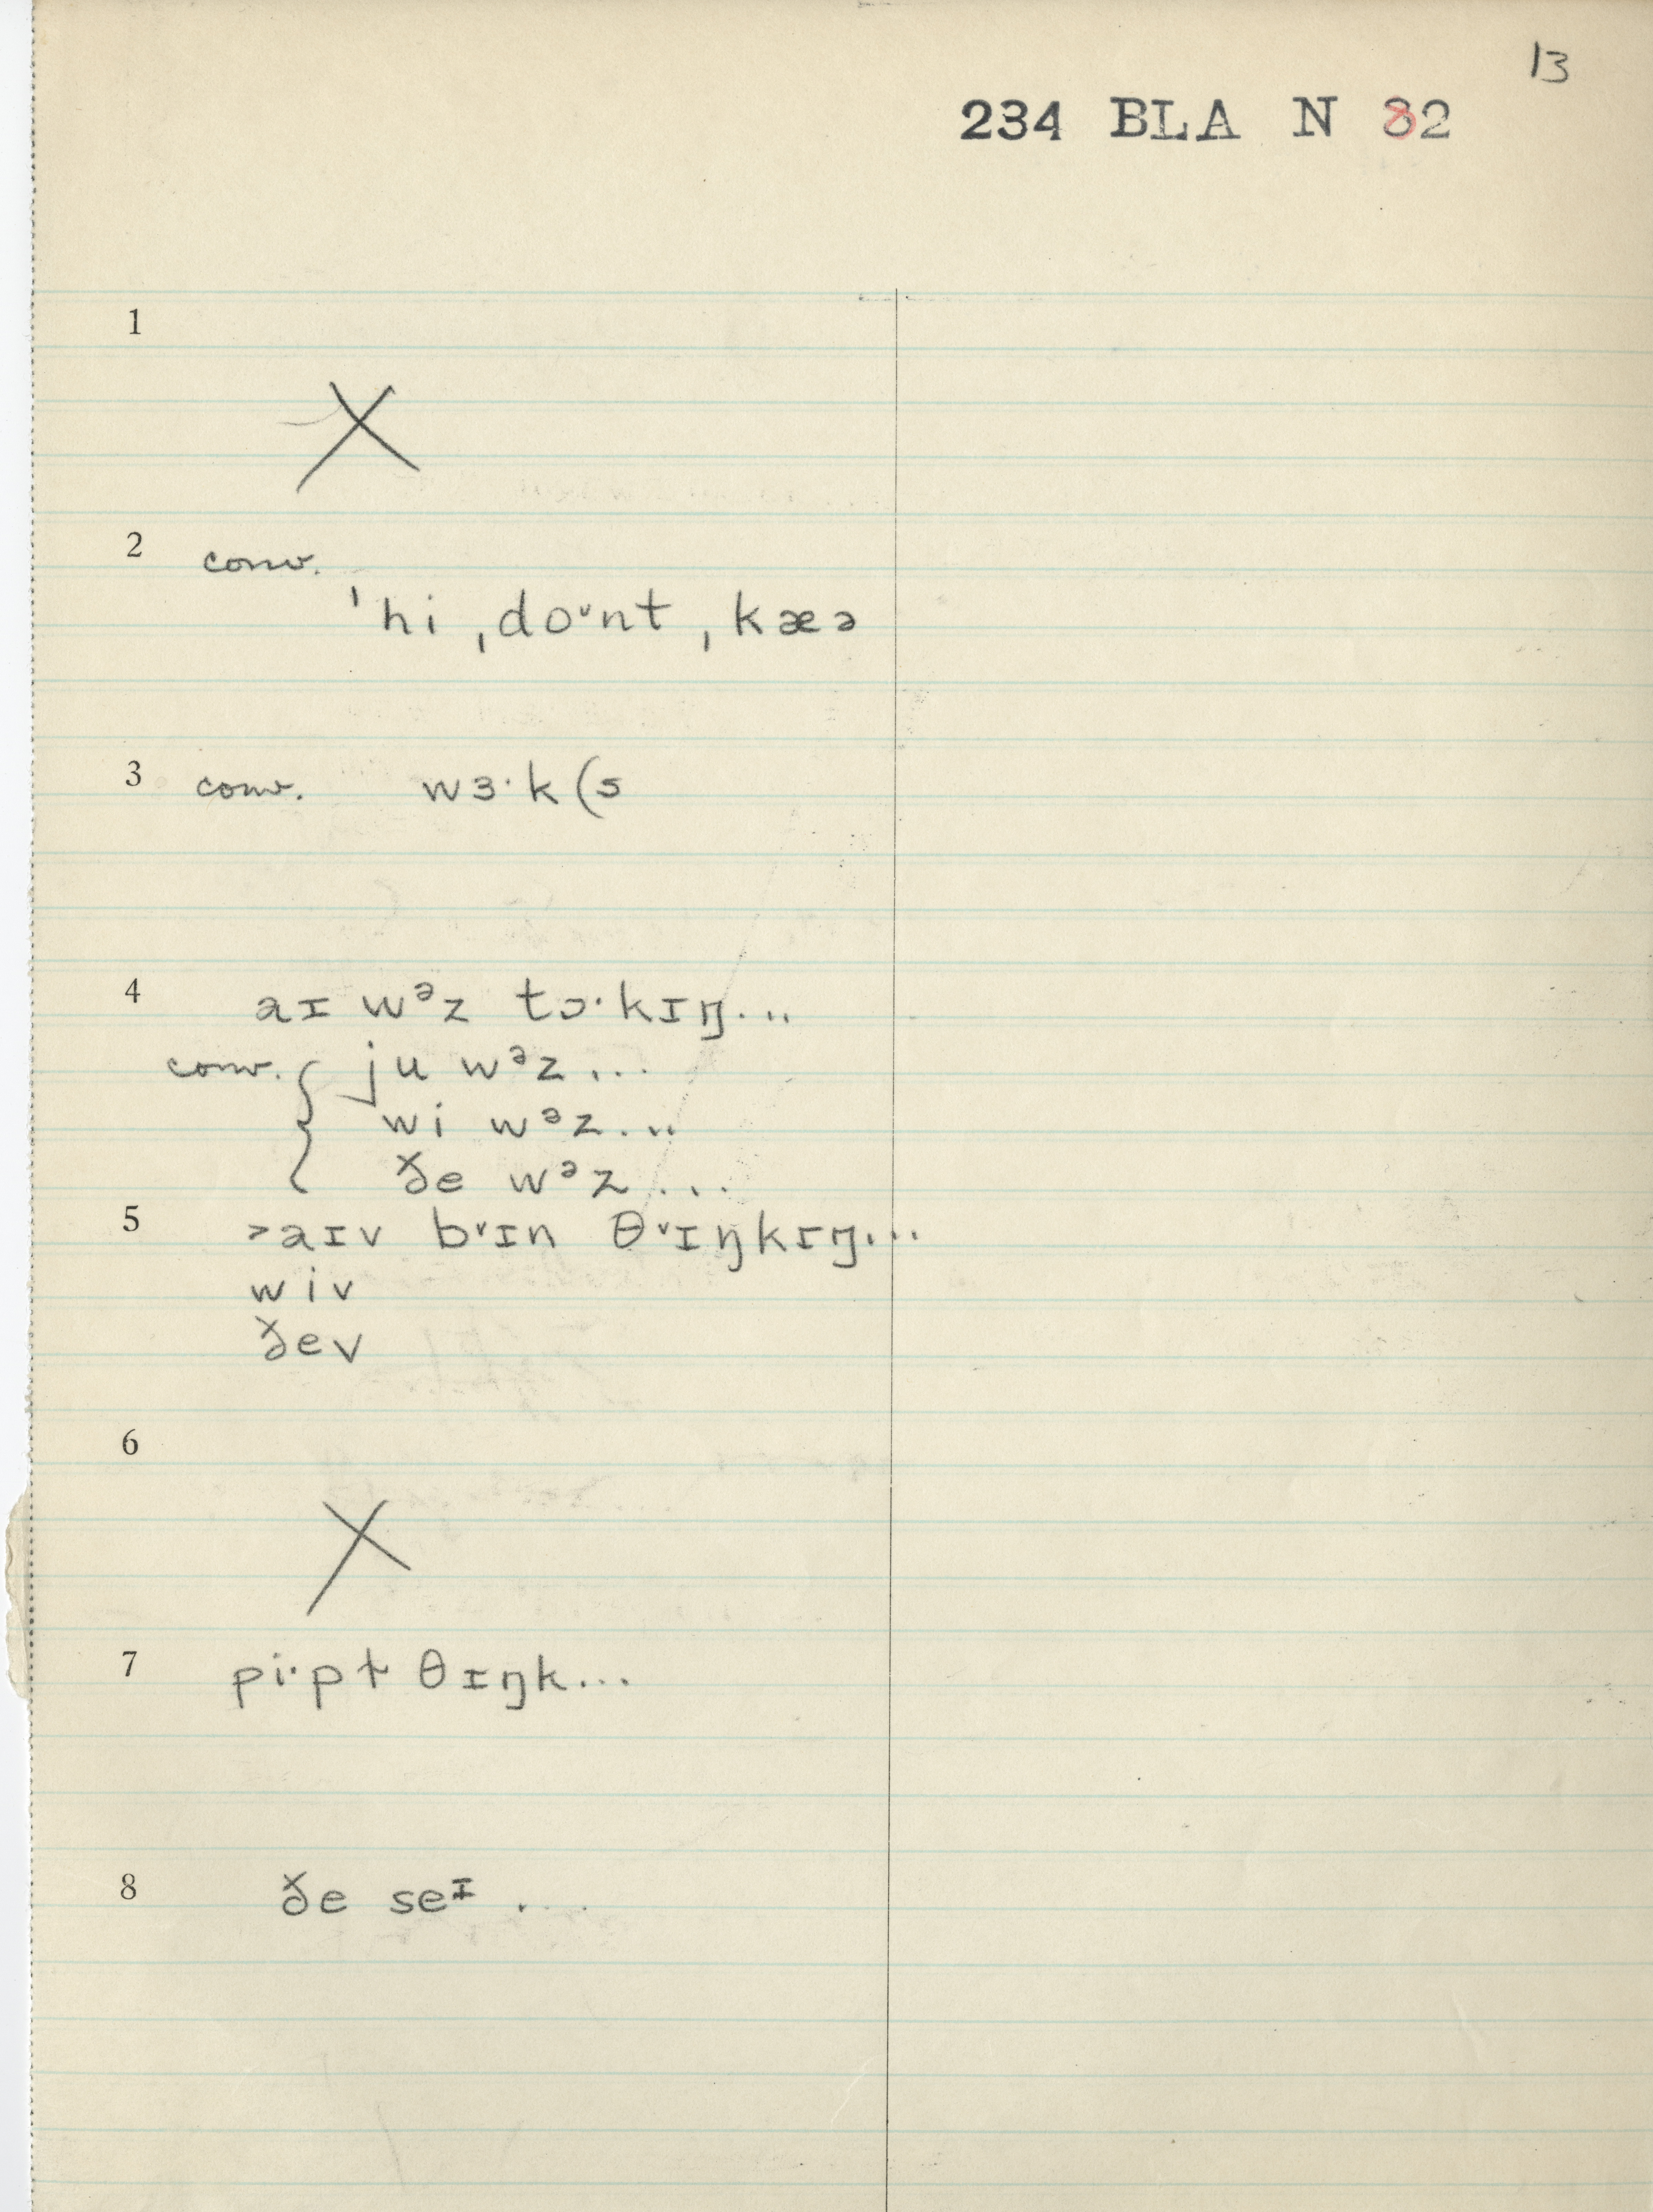 13
234 BLA N 82
1
X
2 conv.
ˈhi ˌdoᵛnt ˌkæə
3 conv. wɜ·k (s
4 aɪ wᵊz tɔ·kɪŋ...
conv. { ju wᵊz...
wi wᵊz...
ðe wᵊz...
5 >aɪv bᵛɪn θᵛɪŋkɪŋ...
wiv
ðev
6
X
7 pi·pɫ θɪŋk...
8 ðe seᶦ ...